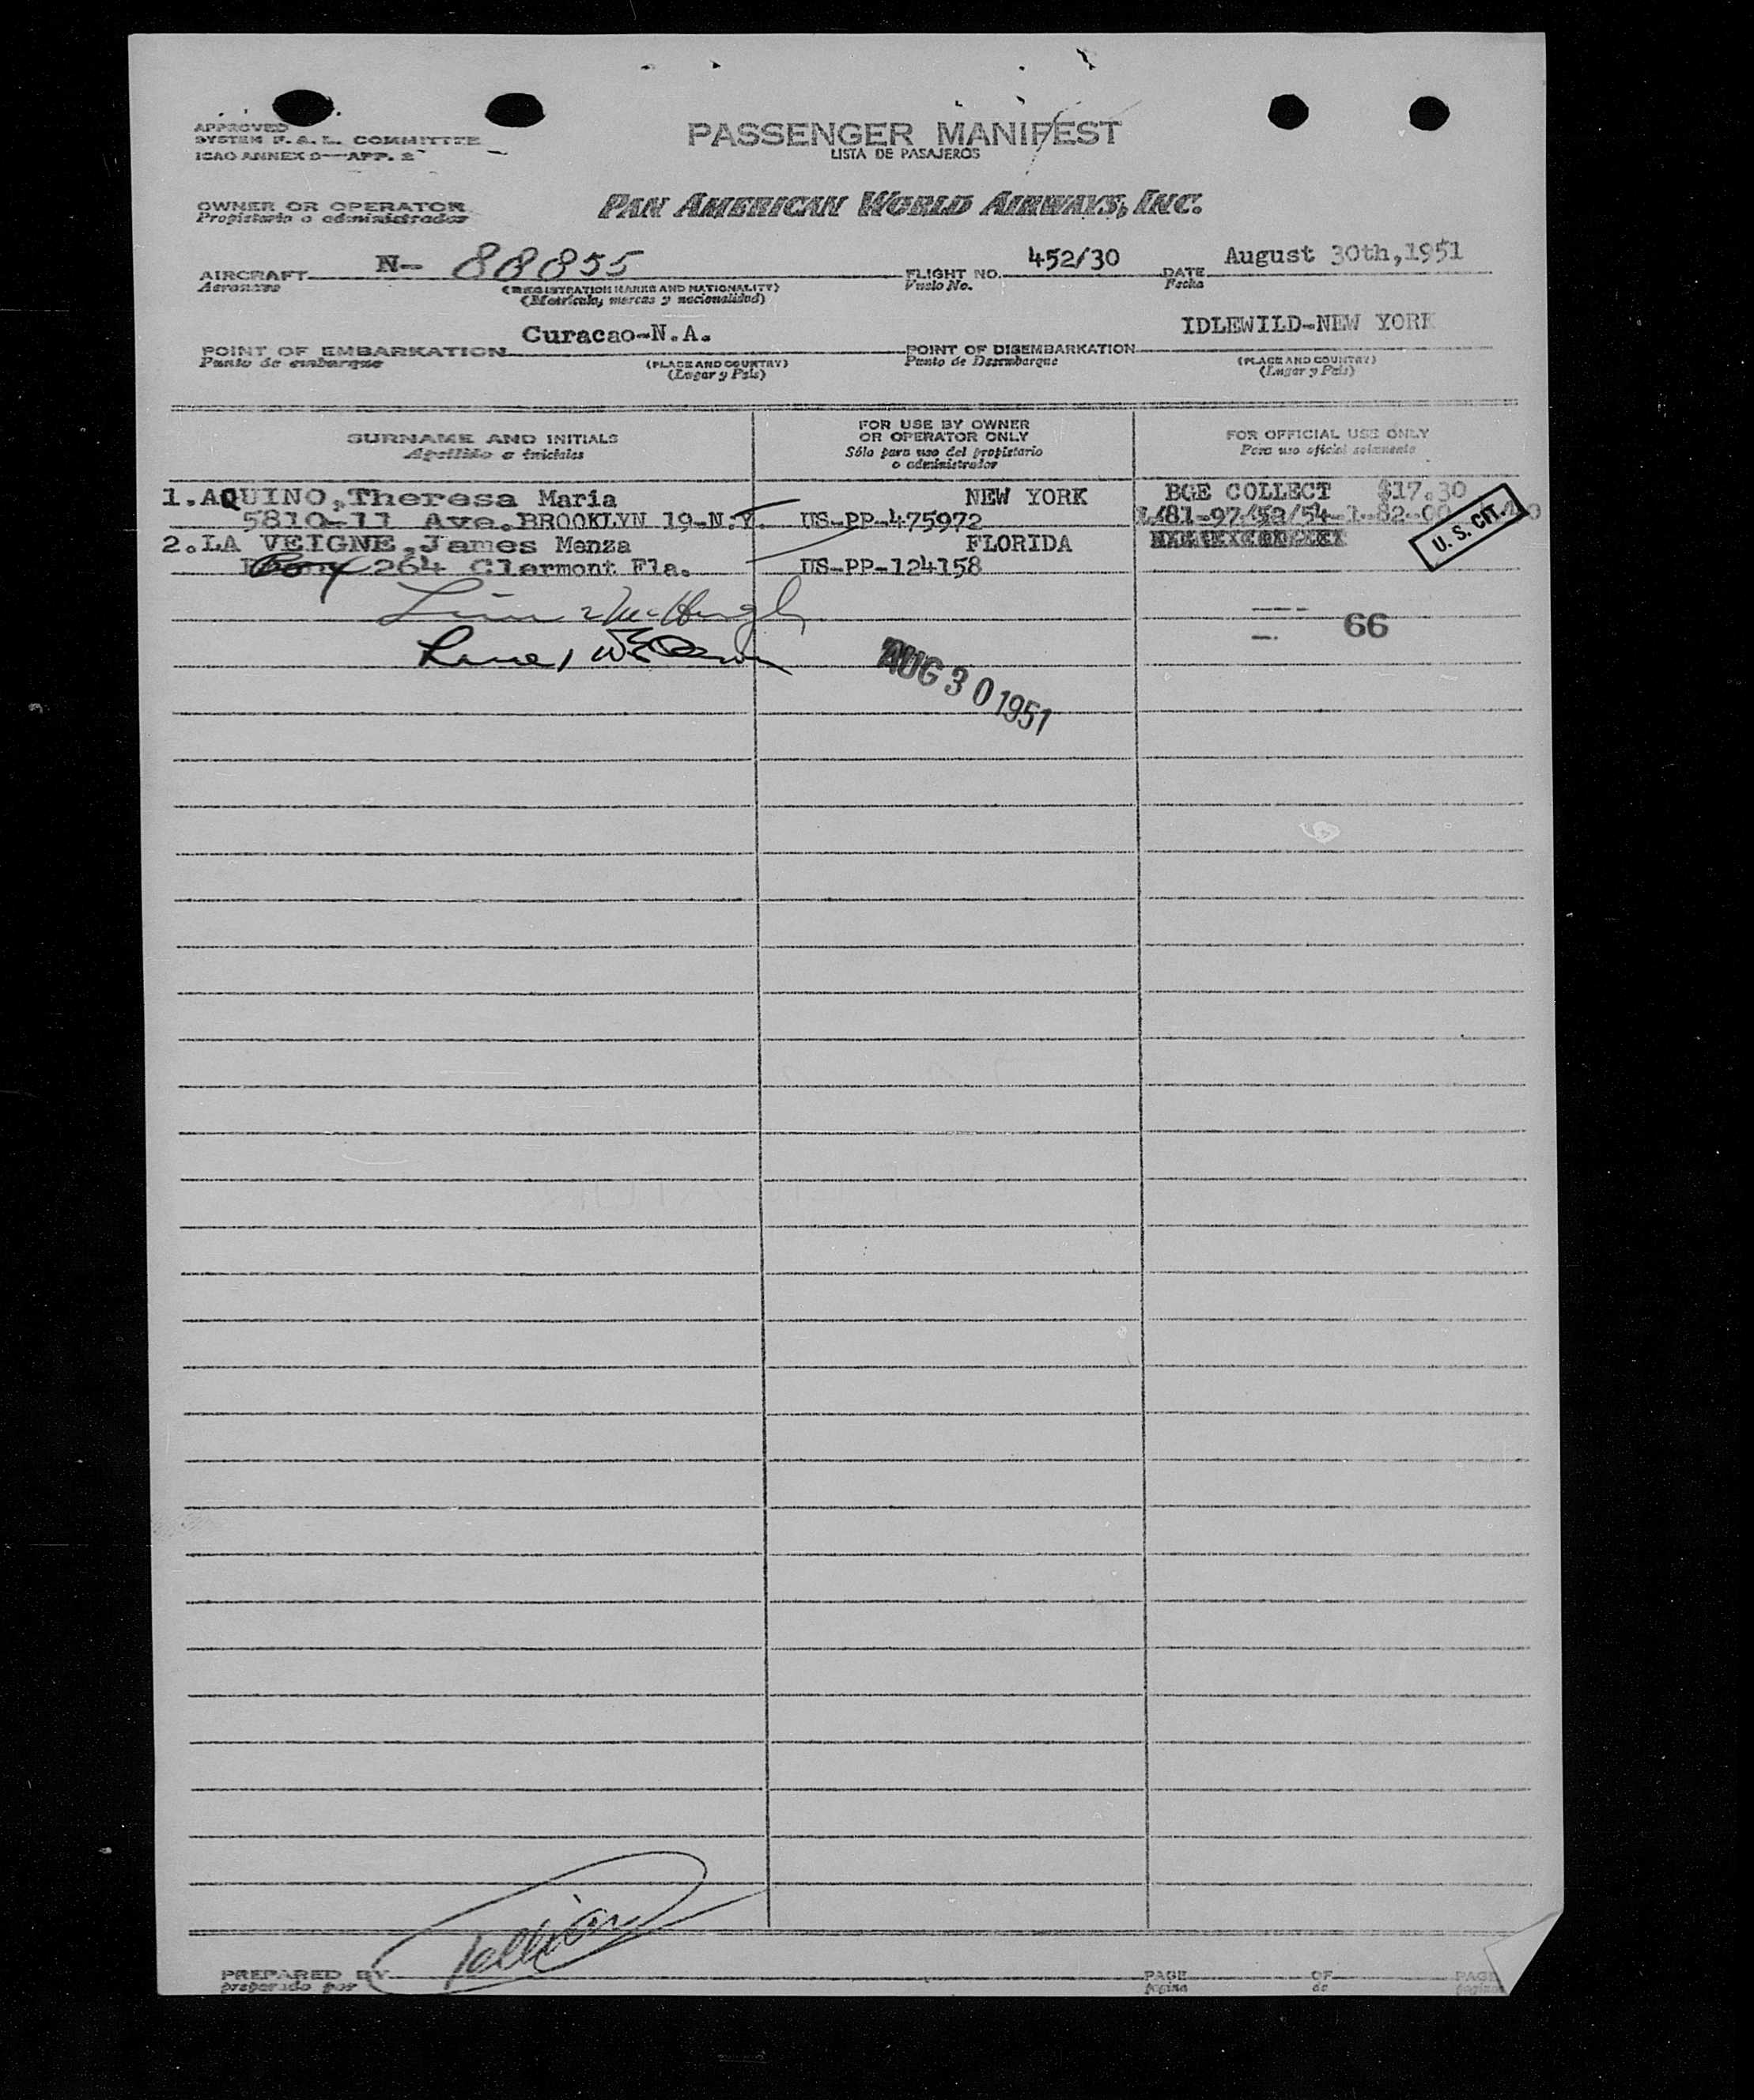 APPROVED
SYSTEM F. A. L. COMMITTEE
ICAO ANNEX 9—APP. 2
PASSENGER MANIFEST
LISTA DE PASAJEROS
OWNER OR OPERATOR
Propietario o administrador
PAN AMERICAN WORLD AIRWAYS, INC.
AIRCRAFT N- 88855 FLIGHT NO. 452/30 DATE August 30th,1951
Aeronave (REGISTRATION MARKS AND NATIONALITY) Vuelo No. Fecha
(Matrícula, marcas y nacionalidad)
POINT OF EMBARKATION Curacao-N.A. POINT OF DISEMBARKATION IDLEWILD-NEW YORK
Punto de embarque (PLACE AND COUNTRY) Punto de Desembarque (PLACE AND COUNTRY)
(Lugar y País) (Lugar y País)
SURNAME AND INITIALS
Apellido e iniciales
FOR USE BY OWNER
OR OPERATOR ONLY
Sólo para uso del propietario
o administrador
FOR OFFICIAL USE ONLY
Para uso oficial solamente
1.AQUINO,Theresa Maria NEW YORK BGE COLLECT $17.30
5810-11 Ave.BROOKLYN 19-N.Y. US-PP-475972
2.LA VEIGNE,James Menza FLORIDA
Box 264 Clermont Fla. US-PP-124158
U. S. CIT.
66
AUG 30 1951
PREPARED BY PAGE OF PAGE
preparado por página de